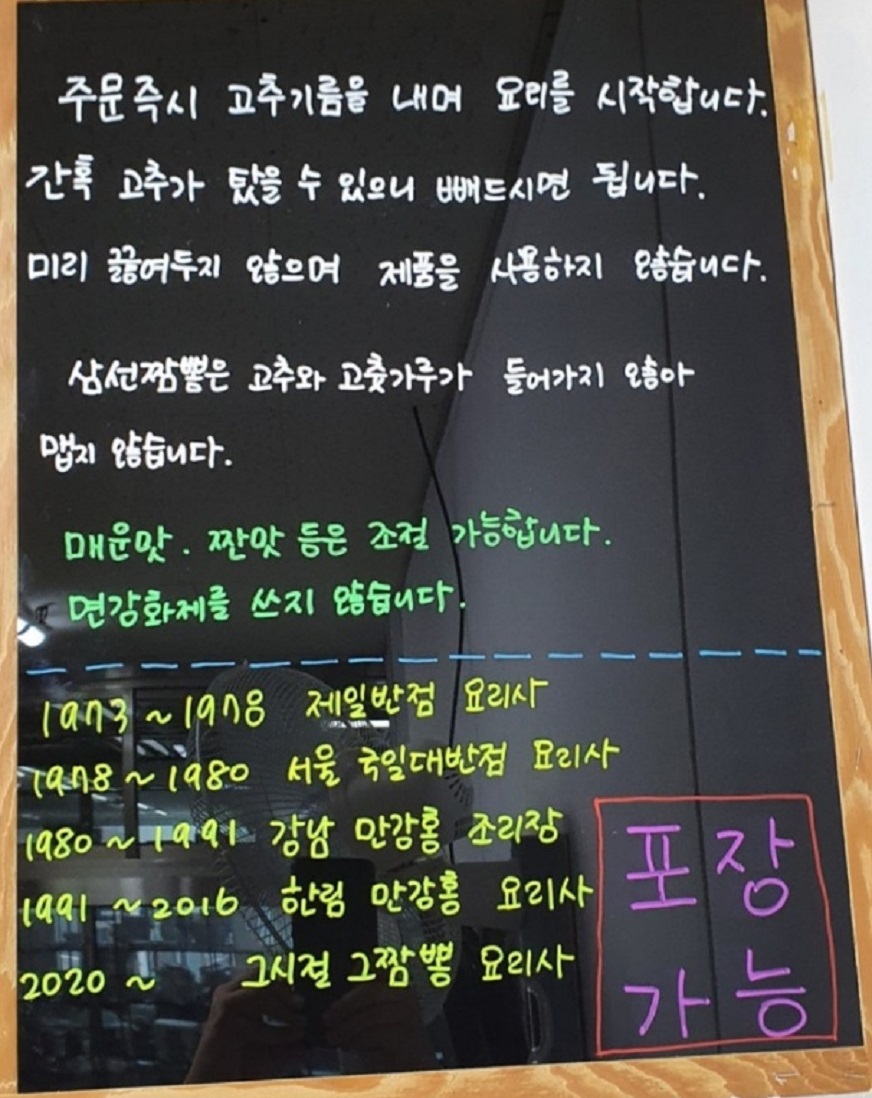 주문즉시 고추기름을 내며 요리를 시작합니다.
간혹 고추가 탔을 수 있으니 빼드시면 됩니다.
미리 끓여두지 않으며 제품을 사용하지 않습니다.
삼선짬뽕은 고추와 고춧가루가 들어가지 않아
맵지 않습니다.
매운맛. 짠맛 등은 조절 가능합니다.
면강화제를 쓰지 않습니다.
1973 ~ 1978 제일반점 요리사
1978 ~ 1980 서울 국일대반점 요리사
1980 ~ 1991 강남 만강홍 조리장
1991 ~ 2016 한림 만강홍 요리사
2020 ~ 그시절 그짬뽕 요리사
포장
가능